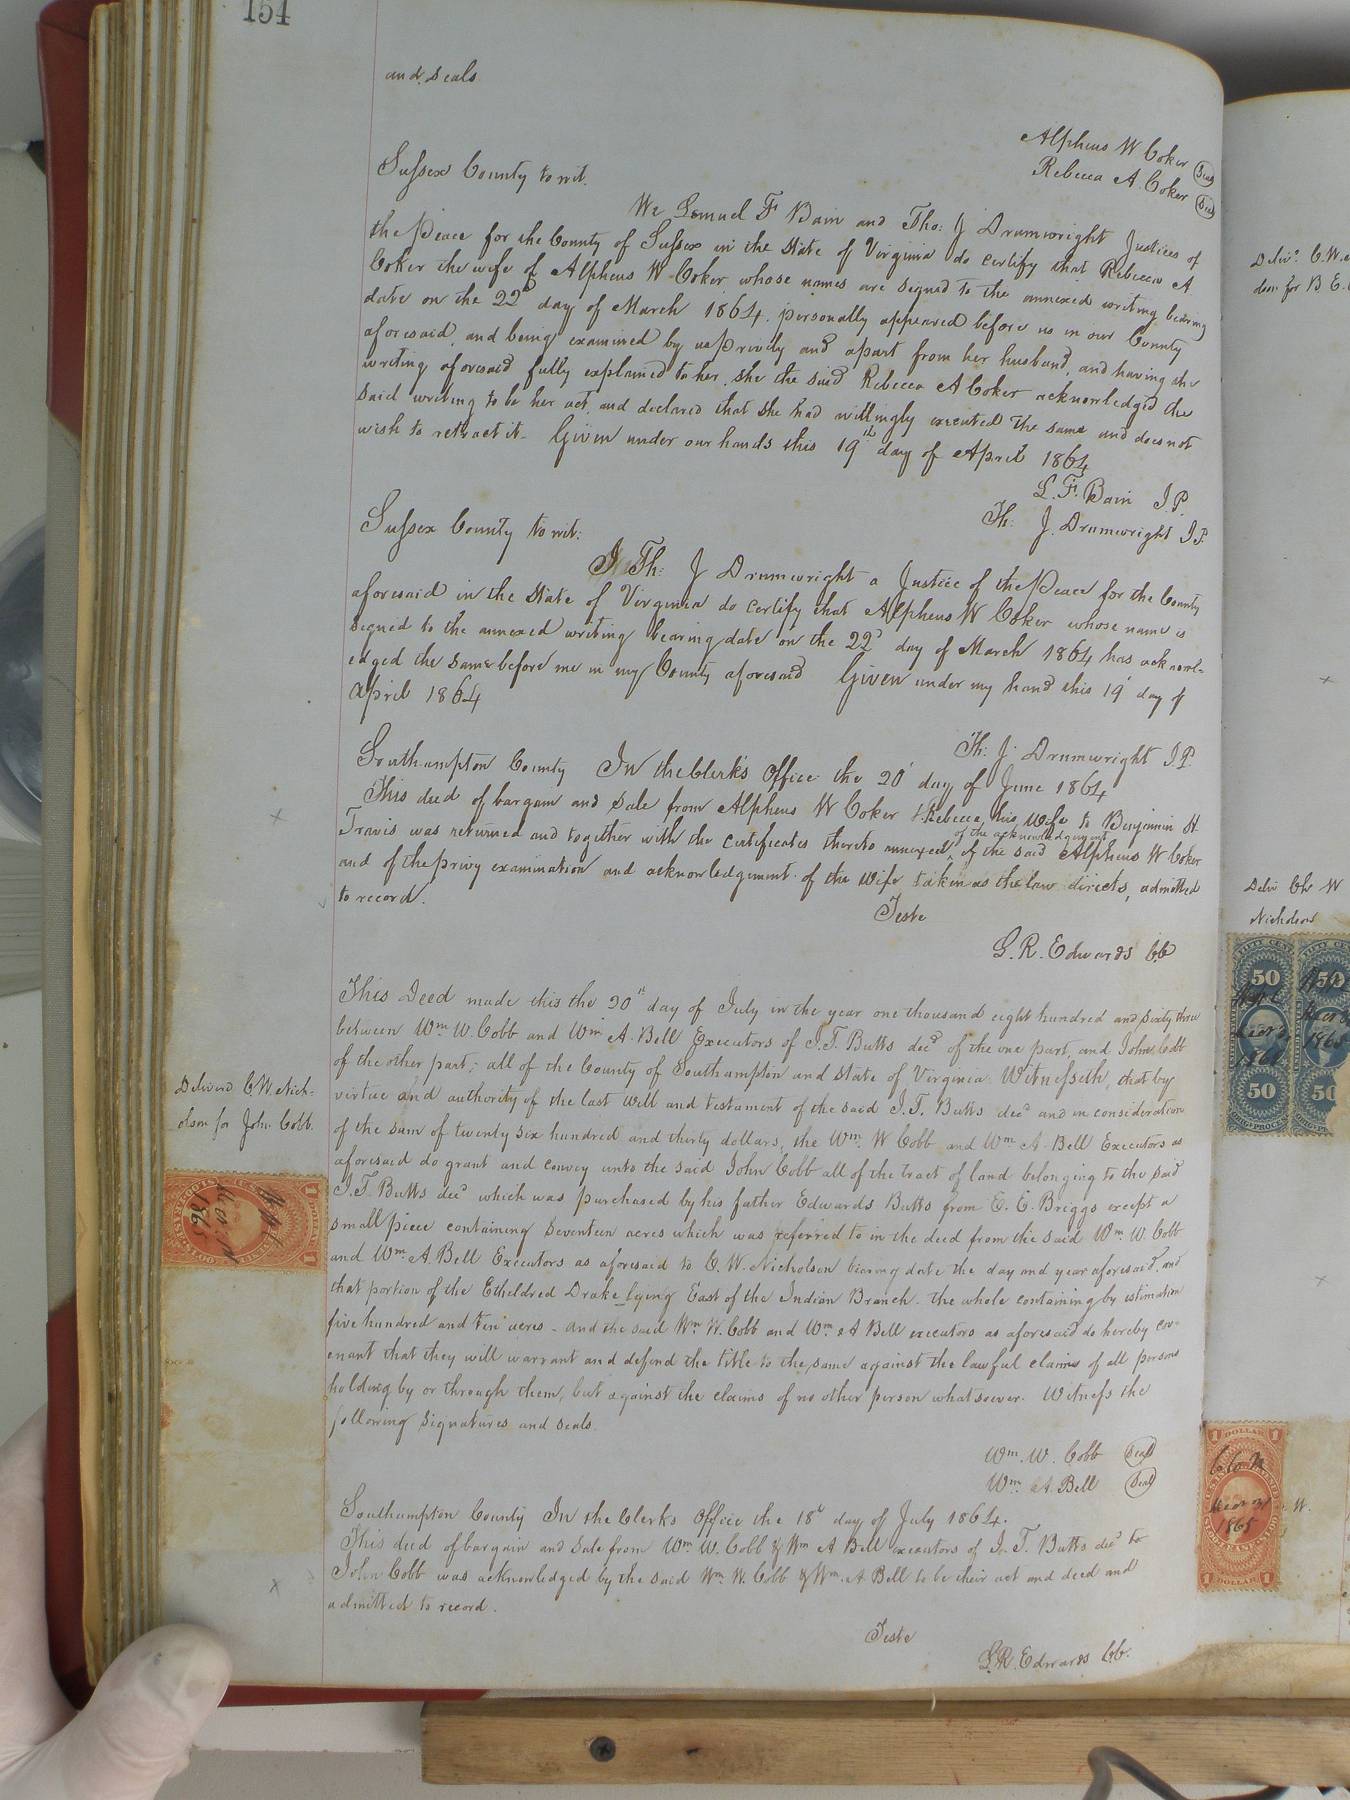 154
and seals
Alpheus W Coker Seal
Rebecca A. Coker Seal
Sussex County to wit.
We Lemuel F Bain and Tho: J Drumwright Justices of
the Peace for the County of Sussex in the State of Virginia do certify that Rebecca A
Coker the wife of Alpheus W Coker whose names are signed to the annexed writing bearing
date on the 22d day of March 1864. personally appeared before us in our County
aforesaid, and being examined by us privily and apart from her husband, and having the
writing aforesaid fully explained to her, she the said Rebecca A Coker acknowledged the
said writing to be her act, and declared that she had willingly executed the same and does not
wish to retract it. Given under our hands this 19th day of April 1864
L. F. Bain J.P.
Th: J. Drumwright J.P.
Sussex County to wit:
I Th: J Drumwright a Justice of the Peace for the County
aforesaid in the State of Virginia do certify that Alpheus W Coker whose name is
signed to the annexed writing bearing date on the 22d day of March 1864 has acknowl-
edged the same before me in my County aforesaid Given under my hand this 19 day of
April 1864
Th: J. Drumwright J.P.
Southampton County In the Clerk's Office the 20 day of June 1864
This deed of bargain and sale from Alpheus W Coker & Rebecca his wife to Benjamin H.
Travis was returned and together with the certificates thereto annexed, of the acknowledgment of the said Alpheus W Coker
and of the privy examination and acknowledgment of the wife taken as the law directs, admitted
to record.
Teste
L. R. Edwards CC
This Deed made this the 20th day of July in the year one thousand eight hundred and sixty three
between Wm. W. Cobb and Wm A. Bell Executors of J. T. Butts decd of the one part, and John Cobb
of the other part; all of the County of Southampton and State of Virginia. Witnesseth, that by
virtue and authority of the last will and testament of the said J. T. Butts decd and in consideration
of the sum of twenty six hundred and thirty dollars, the Wm. W Cobb and Wm A. Bell Executors as
aforesaid do grant and convey unto the said John Cobb all of the tract of land belonging to the said
J. T. Butts decd which was purchased by his father Edwards Butts from E. E. Briggs except a
small piece containing seventeen acres which was referred to in the deed from the said Wm W. Cobb
and Wm. A. Bell Executors as aforesaid to C. W. Nicholson bearing date the day and year aforesaid, and
that portion of the Etheldred Drake lying East of the Indian Branch. the whole containing by estimation
five hundred and ten acres - and the said Wm W. Cobb and Wm A Bell executors as aforesaid do hereby cov-
enant that they will warrant and defend the title to the same against the lawful claims of all persons
holding by or through them, but against the claims of no other person whatsoever. Witness the
following signatures and seals.
Wm. W. Cobb Seal
Wm. A. Bell Seal
Southampton County In the Clerks Office the 18th day of July 1864.
This deed of bargain and sale from Wm W. Cobb & Wm A Bell executors of J. T. Butts decd to
John Cobb was acknowledged by the said Wm. W. Cobb & Wm. A Bell to be their act and deed and
admitted to record.
Teste
L. R. Edwards CC.
Deliverd C. W. Nich-
olson for John Cobb.
1 DOLLAR 1
1865
Delivd C. W.
for B E.
Deliv Ch W
Nicholson
FIFTY CENTS
50
50
50
50
1865
1 DOLLAR 1
1865
1 DOLLAR 1
W.